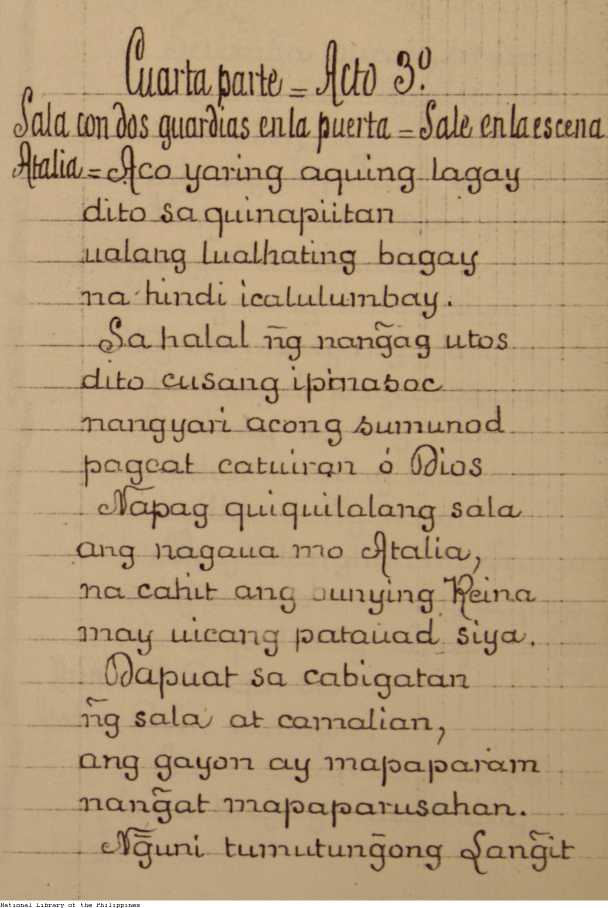 Cuarta parte = Acto 3º
Sala con dos guardias en la puerta = Sale en la escena
Atalia = Aco yaring aquing lagay
dito sa quinapiitan
ualang lualhating bagay
na hindi icalulumbay.
Sa halal ñ̃g nang̃ag utos
dito cusang ipinasoc
nangyari acong sumunod
pagcat catuiran ó Dios
Napag quiquilalang sala
ang nagaua mo Atalia,
na cahit ang bunying Reina
may uicang patauad siya.
Dapuat sa cabigatan
ñg sala at camalian,
ang gayon ay mapaparam
nang̃at mapaparusahan.
Ng̃uni tumutung̃ong Lang̃it
National Library of the Philippines